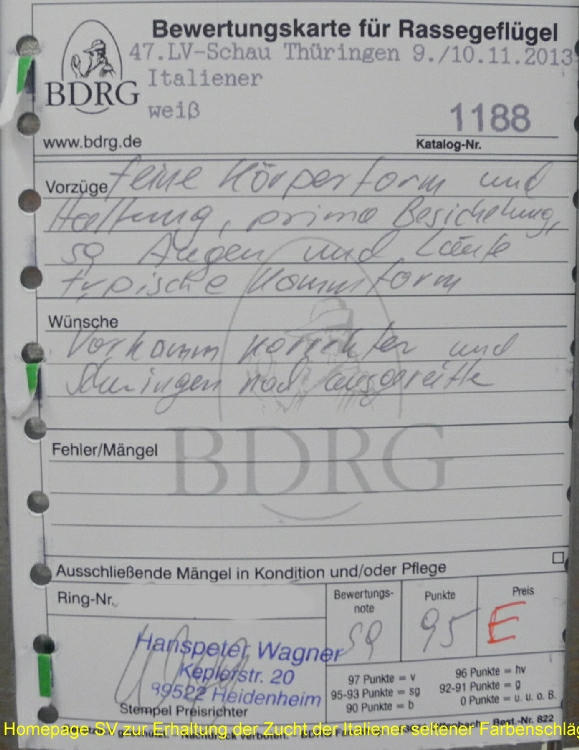 Bewertungskarte für Rassegeflügel
47.LV-Schau Thüringen 9./10.11.2013
Italiener
BDRG
weiß
1188
www.bdrg.de
Katalog-Nr.
Vorzüge feine Körperform und
Haltung, prima Besichelung,
sg Augen und Läufe
typische Kammform
Wünsche
Vorkamm korrekter und
Schwingen noch ausgereifte
BDRG
Fehler/Mängel
Ausschließende Mängel in Kondition und/oder Pflege
Ring-Nr.
Bewertungs-
note
Punkte
Preis
sg
95
E
Hanspeter Wagner
Keplerstr. 20
89522 Heidenheim
Stempel Preisrichter
97 Punkte = v
96 Punkte = hv
95-93 Punkte = sg
92-91 Punkte = g
90 Punkte = b
0 Punkte = u. u. o. B.
Nachdruck verboten.
Best.-Nr. 822
Homepage SV zur Erhaltung der Zucht der Italiener seltener Farbenschläg